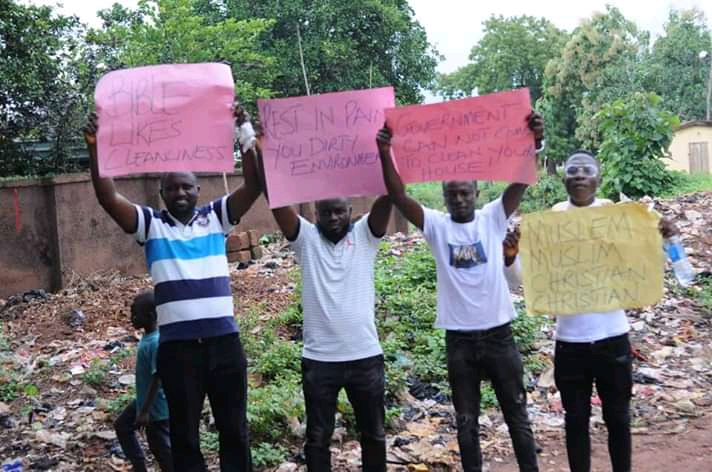 BIBLE
LIKES
CLEANLINESS
REST IN PAIN
YOU DIRTY
ENVIRONMENT
GOVERNMENT
CAN NOT COME
TO CLEAN YOUR
HOUSE
MUSLEM
MUSLIM
CHRISTIAN
CHRISTIAN